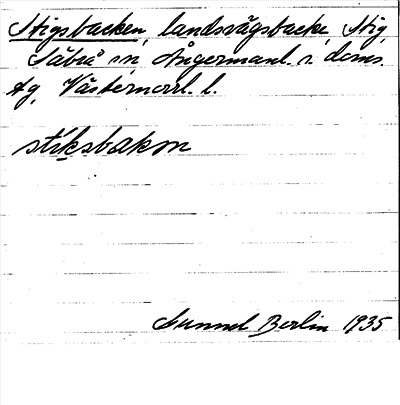 Stigsbacken, landsvägsbacke, Stig,
Säbrå sn, Ångermanl. s. doms.
tg, Västernorrl. l.
stiksbakən
Gunnel Berlin 1935